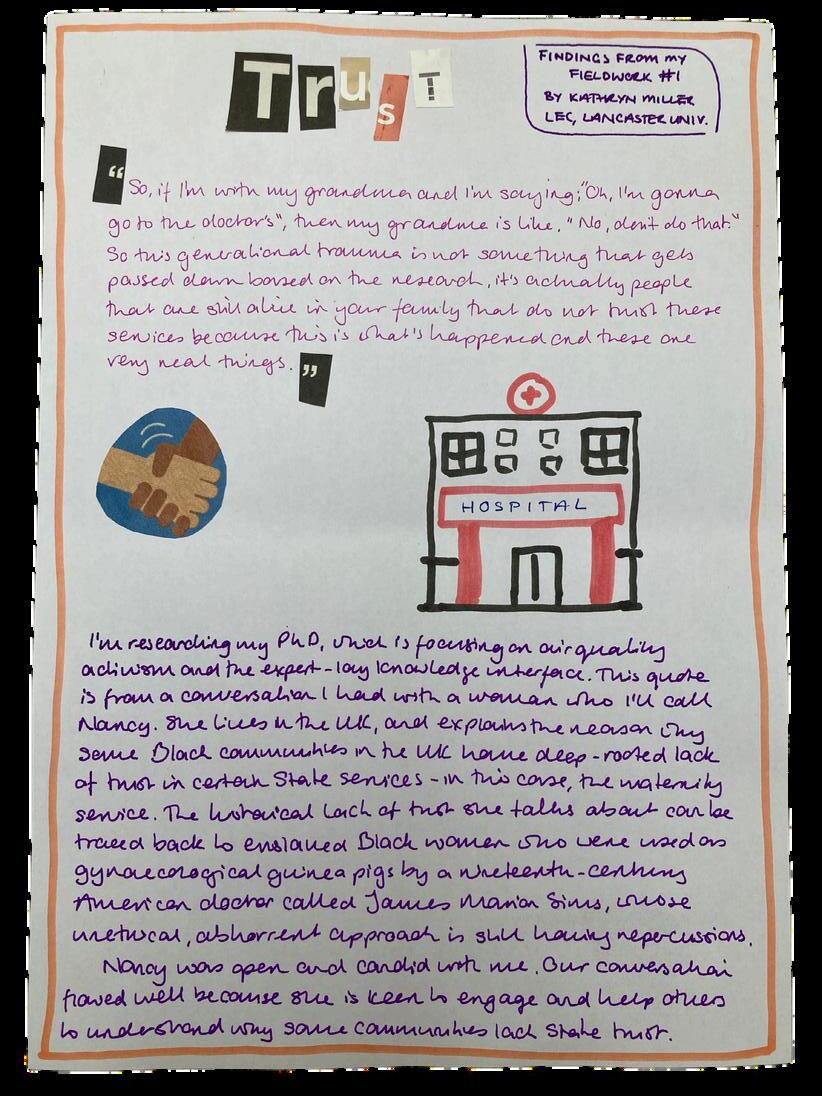 TrusT
FINDINGS FROM MY
FIELDWORK #1
BY KATHRYN MILLER
LEC, LANCASTER UNIV.
“So, if I'm with my grandma and I'm saying; "Oh, I'm gonna
go to the doctor's", then my grandma is like. "No, don't do that."
So this generational trauma is not something that gets
passed down based on the research, it's actually people
that are still alive in your family that do not trust these
services because this is what's happened and these are
very real things.”
HOSPITAL
I'm researching my PhD, which is focusing on air quality
activism and the expert-lay knowledge interface. This quote
is from a conversation I had with a woman who I'll call
Nancy. She lives in the UK, and explains the reason why
some Black communities in the UK have deep-rooted lack
of trust in certain State services - in this case, the maternity
service. The historical lack of trust she talks about can be
traced back to enslaved Black women who were used as
gynaecological guinea pigs by a nineteenth-century
American doctor called James Marion Sims, whose
unethical, abhorrent approach is still having repercussions.
Nancy was open and candid with me. Our conversation
flowed well because she is keen to engage and help others
to understand why some communities lack State trust.